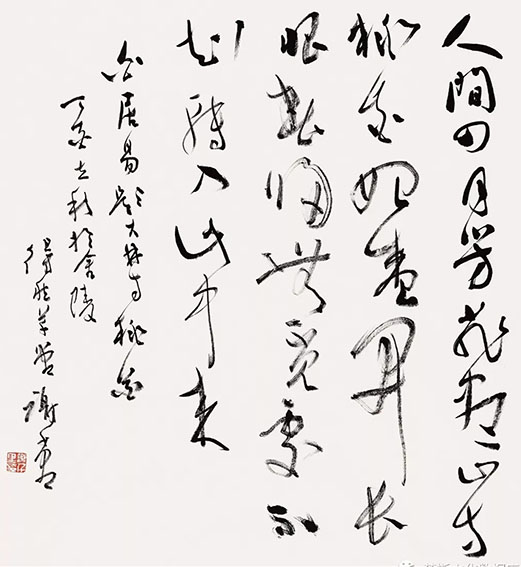 人間四月芳菲盡山寺
桃花始盛開長
恨春歸無覓處不
知轉入此中來
白居易題大林寺桃花
丁亥立秋於金陵
草堂謝